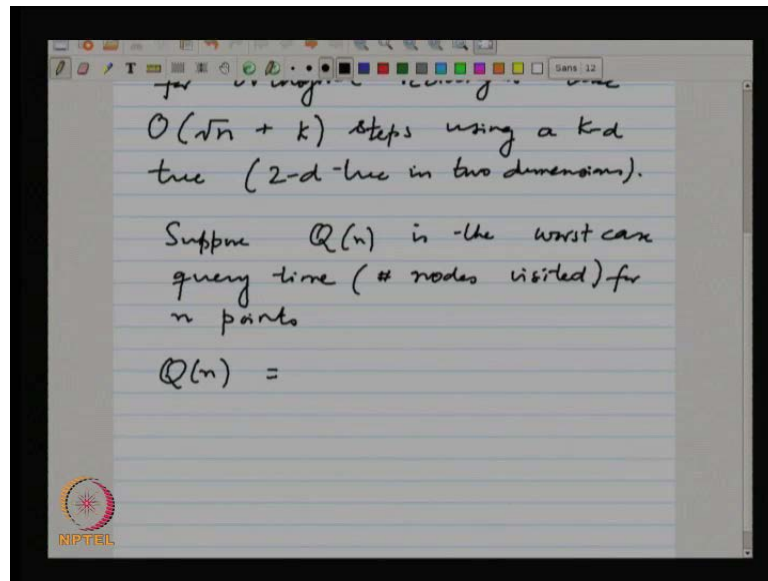 T Sans 12
for orthogonal
O(√n + k) steps using a k-d
tree (2-d-tree in two dimensions).
Suppose Q(n) is the worst case
query time (# nodes visited) for
n points
Q(n) =
NPTEL